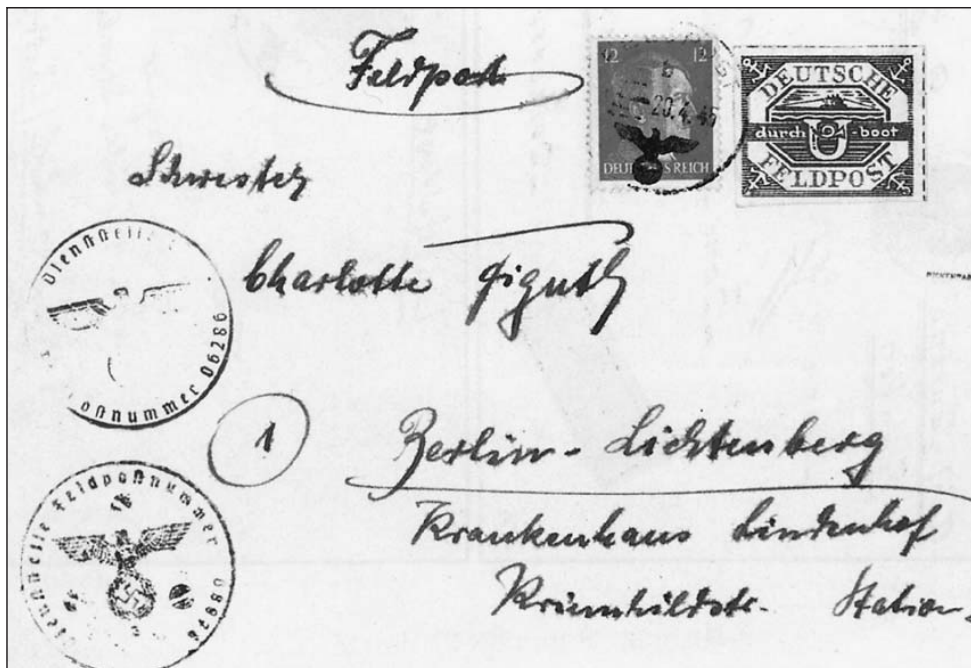 Feldpost
12 12
20.4.45
DEUTSCHES REICH
DEUTSCHE
durch U-boot
FELDPOST
Schwester
Charlotte Figuth
Dienststelle
nummer 06286
1
Berlin-Lichtenberg
Krankenhaus Lindenhof
Dienststelle Feldpostnummer
Station